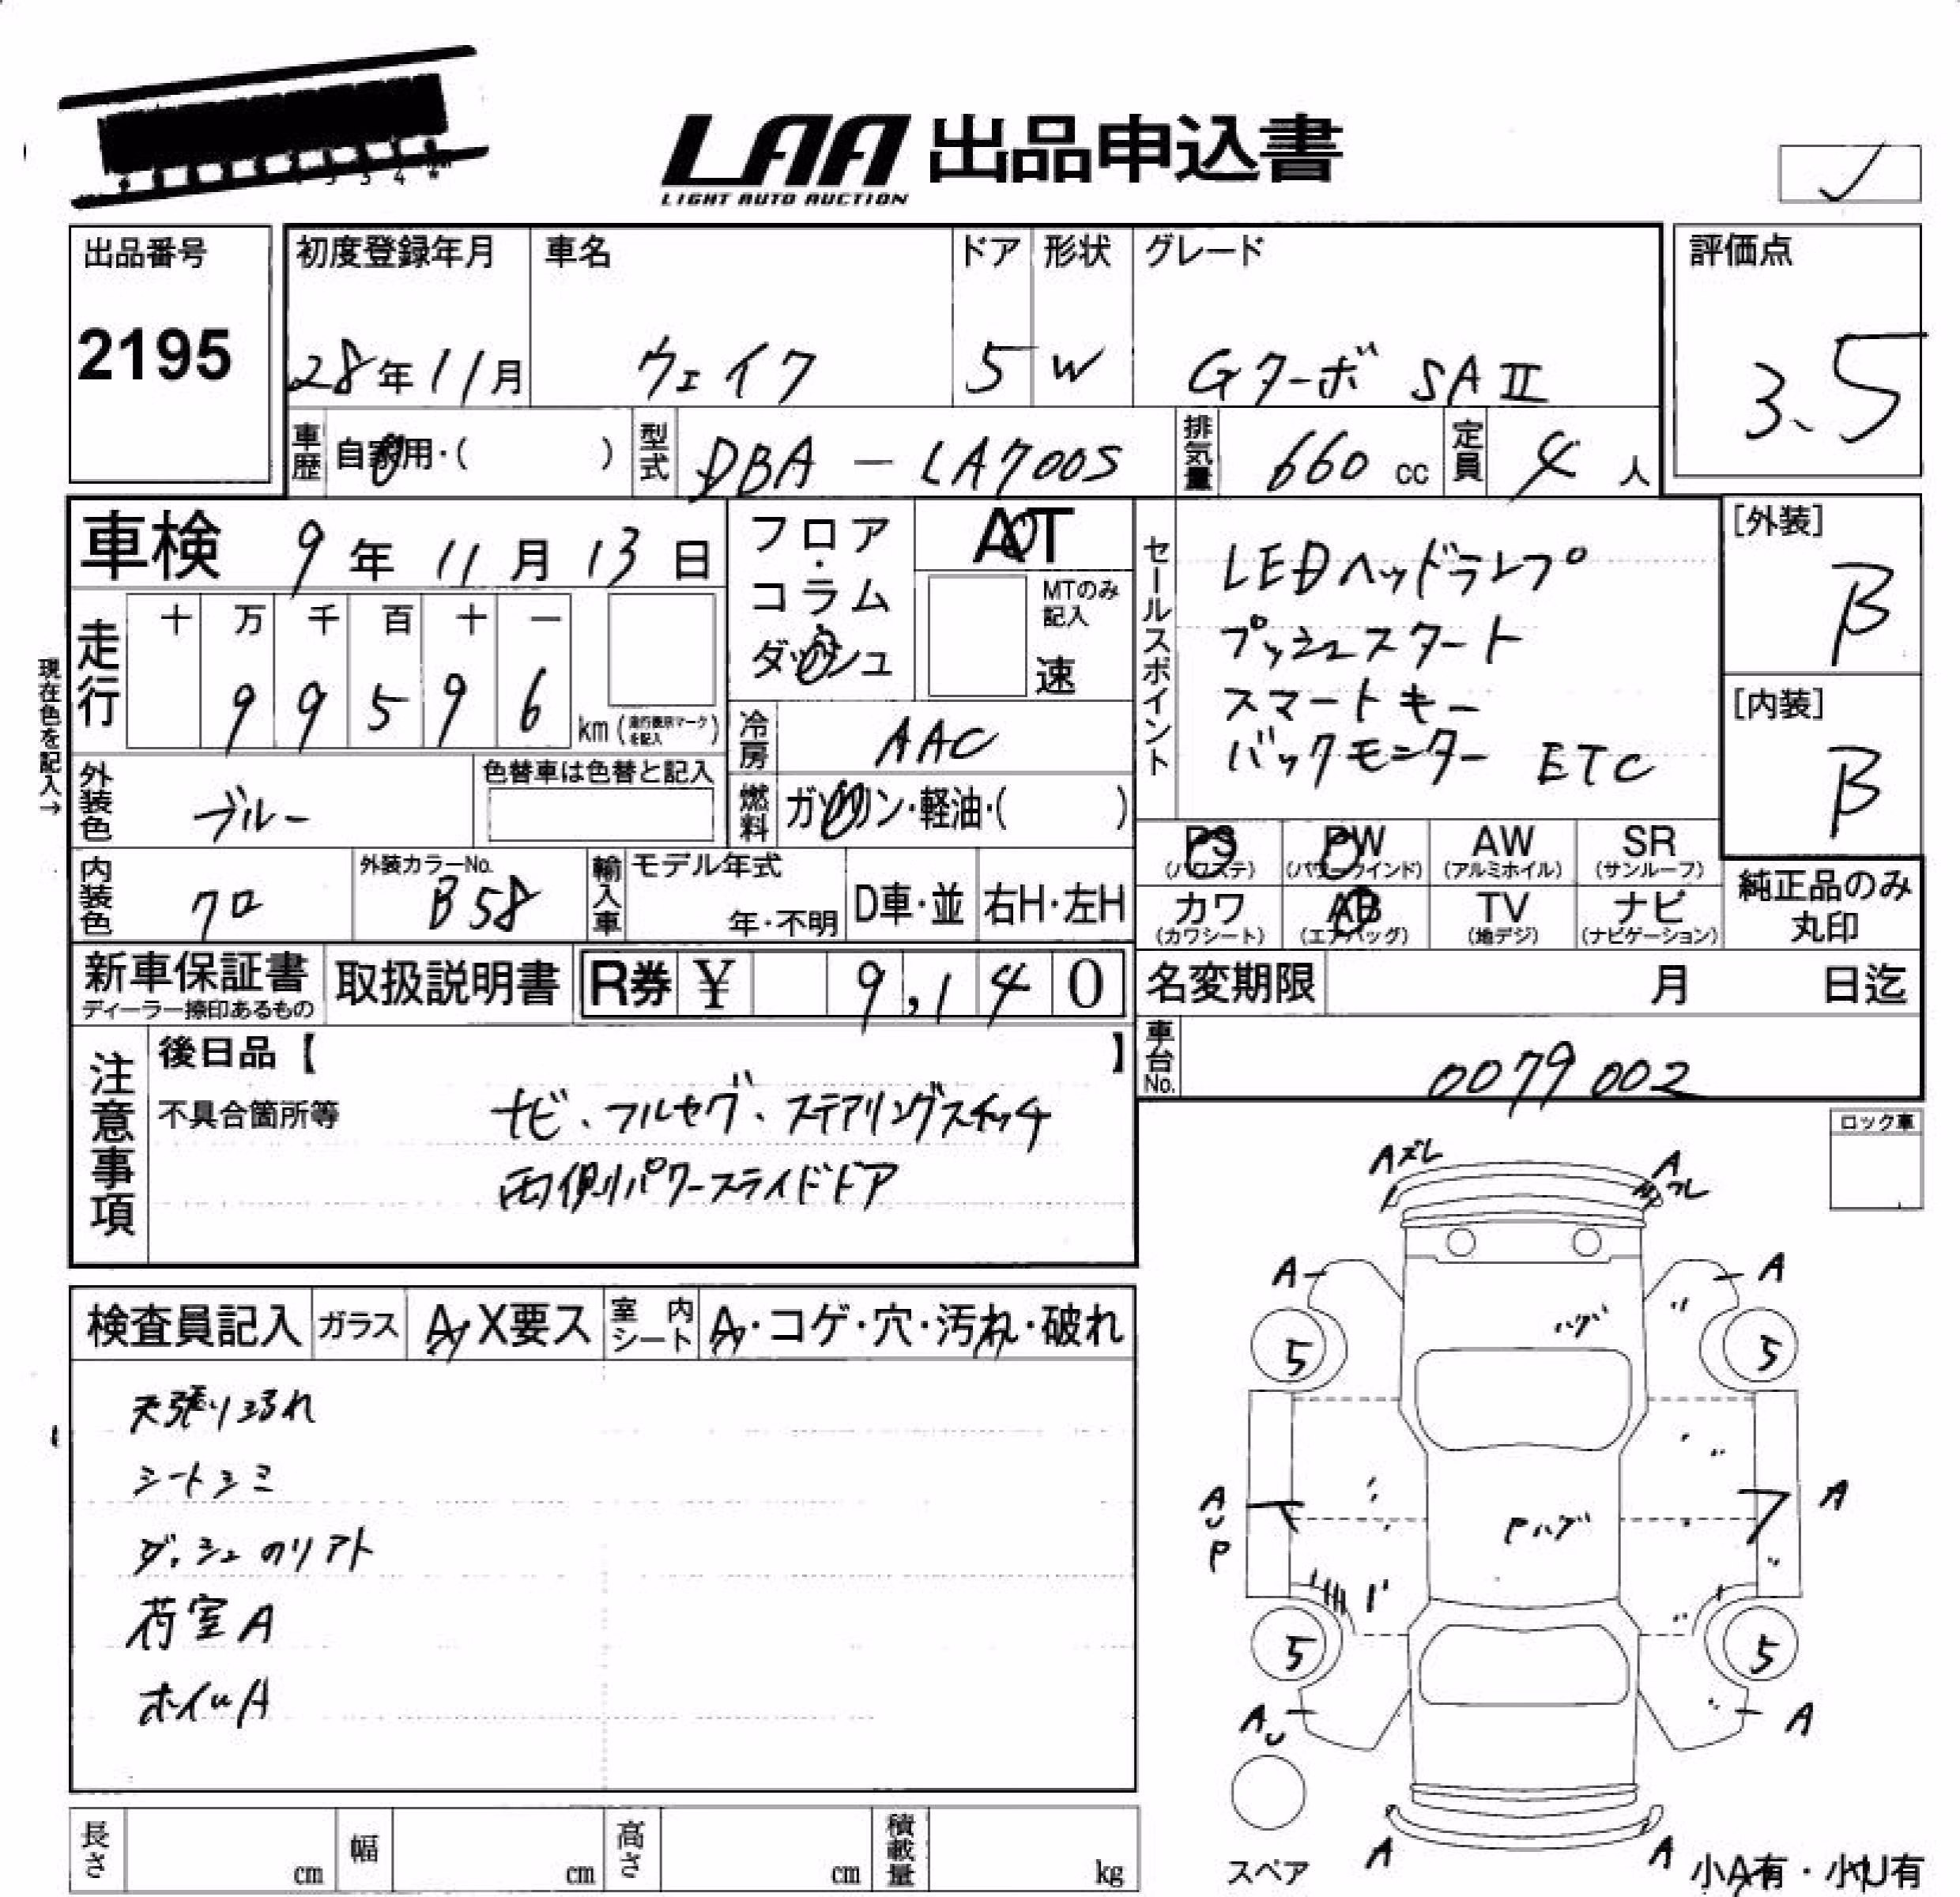 LAA 出品申込書
LIGHT AUTO AUCTION
出品番号
2195
初度登録年月 車名 ドア 形状 グレード
28年11月 ウェイク 5 W Gターボ SAⅡ
評価点
3.5
車歴 自家用・( ) 型式 DBA-LA700S 排気量 660 cc 定員 4 人
車検 9年11月13日
フロア・コラム・ダッシュ
AT
MTのみ記入
速
セールスポイント
LEDヘッドランプ
プッシュスタート
スマートキー
バックモニター ETC
[外装]
B
[内装]
B
現在色を記入→
走行
十 万 千 百 十 一
9 9 5 9 6 km (走行表示マークを記入)
冷房 AAC
外装色 ブルー
色替車は色替と記入
燃料 ガソリン・軽油・( )
内装色 クロ
外装カラーNo. B58
輸入車 モデル年式 年・不明 D車・並 右H・左H
PS (パワステ) PW (パワーウインド) AW (アルミホイル) SR (サンルーフ)
カワ (カワシート) AB (エアバッグ) TV (地デジ) ナビ (ナビゲーション)
純正品のみ
丸印
新車保証書 取扱説明書 R券 ¥ 9,140
ディーラー捺印あるもの
名変期限 月 日迄
車台No. 0079002
注意事項
後日品【 】
不具合箇所等 ナビ、フルセグ、ステアリングスイッチ
両側パワースライドドア
ロック車
検査員記入 ガラス A・X要ス 室内シート A・コゲ・穴・汚れ・破れ
天張り汚れ
シートシミ
ダッシュのリアト
荷室A
ホイルA
Aズレ A
ワレ
A A
ハゲ
5 5
A
U
P
Pハゲ
A
5 5
AU A
A A
スペア
小A有・小U有
長さ cm 幅 cm 高さ cm 積載量 kg